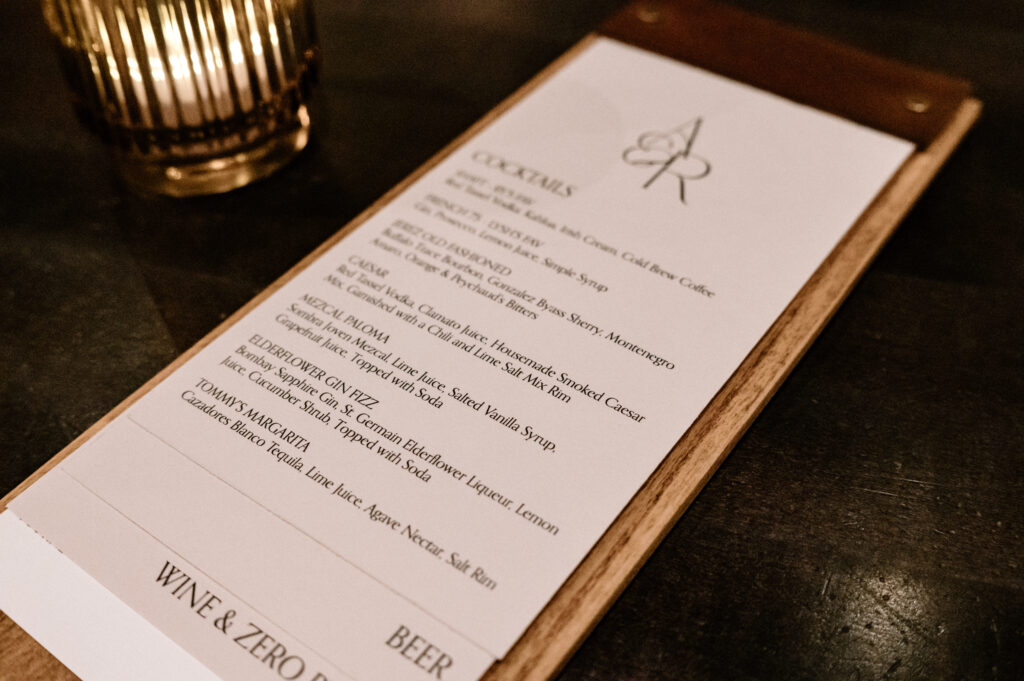 A&R
COCKTAILS
FAV
Red Tassel Vodka, Kahlua, Irish Cream, Cold Brew Coffee
FRENCH 75 - LYSH'S FAV
Gin, Prosecco, Lemon Juice, Simple Syrup
JEREZ OLD FASHIONED
Buffalo Trace Bourbon, Gonzalez Byass Sherry, Montenegro
Amaro, Orange & Peychaud's Bitters
CAESAR
Red Tassel Vodka, Clamato Juice, Housemade Smoked Caesar
Mix, Garnished with a Chili and Lime Salt Mix Rim
MEZCAL PALOMA
Sombra Joven Mezcal, Lime Juice, Salted Vanilla Syrup,
Grapefruit Juice, Topped with Soda
ELDERFLOWER GIN FIZZ
Bombay Sapphire Gin, St. Germain Elderflower Liqueur, Lemon
Juice, Cucumber Shrub, Topped with Soda
TOMMY'S MARGARITA
Cazadores Blanco Tequila, Lime Juice, Agave Nectar, Salt Rim
BEER
WINE & ZERO